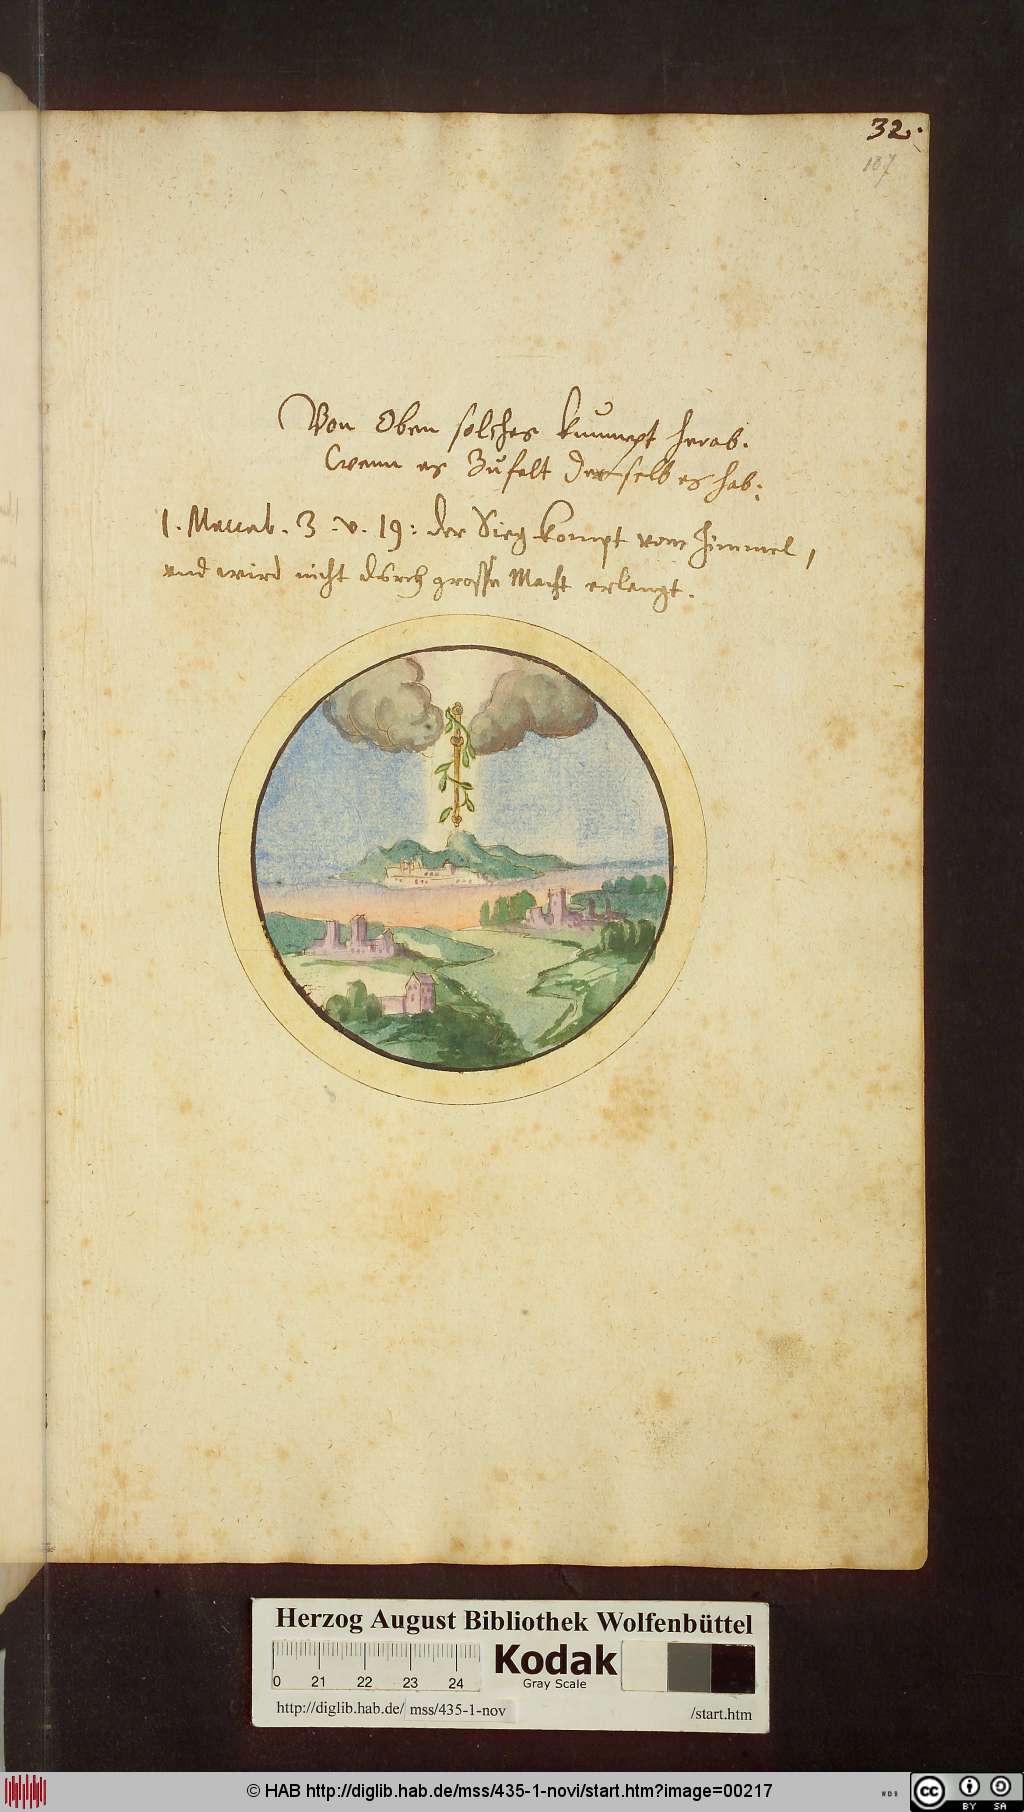 32.
187
Von Oben solches kummpt herab.
Wenn es Zufelt derselb es hab:
1. Maccab. 3. v. 19: der Sieg kompt vom himmel,
vnd wird nicht durch grosse Macht erlangt.
Herzog August Bibliothek Wolfenbüttel
0 21 22 23 24
Kodak
Gray Scale
http://diglib.hab.de/ mss/435-1-nov /start.htm
© HAB http://diglib.hab.de/mss/435-1-novi/start.htm?image=00217
cc BY SA